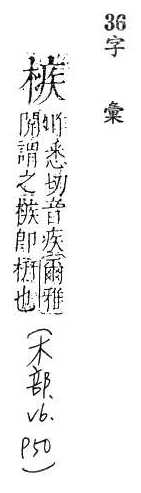 36
字彙
槉
昨悉切音疾爾雅
閞謂之槉卽枅也
(木部. v6. P50)